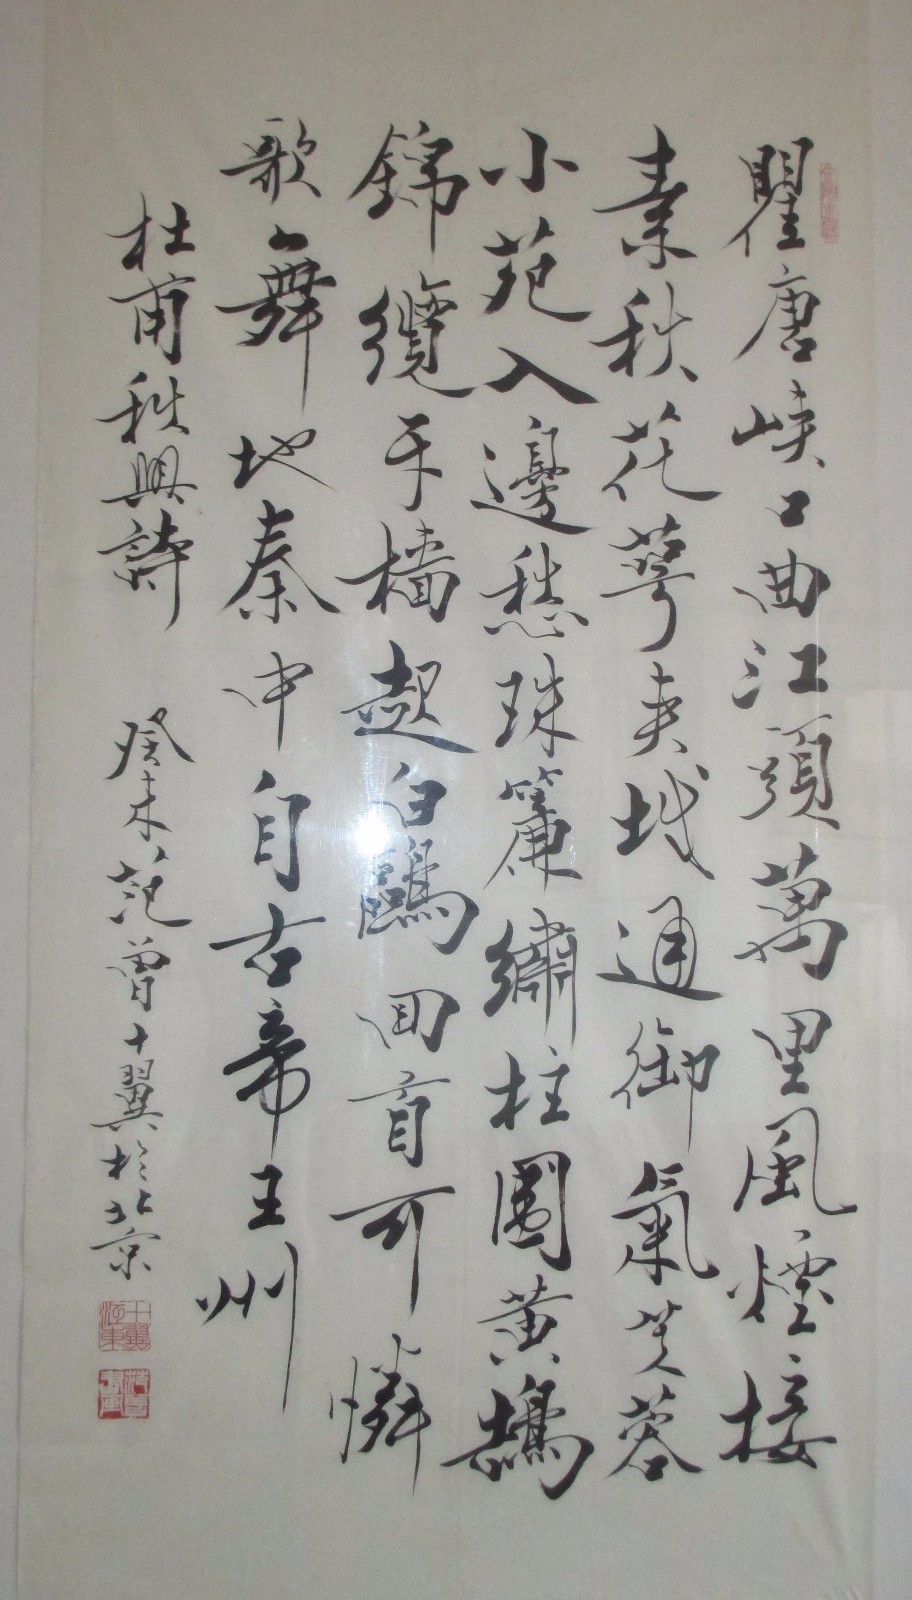 瞿唐峽口曲江頭萬里風煙接
素秋花萼夾城通御氣芙蓉
小苑入邊愁珠簾繡柱圍黃鵠
錦纜牙檣起白鷗回首可憐
歌舞地秦中自古帝王州
杜甫秋興詩
癸未范曾十翼於北京